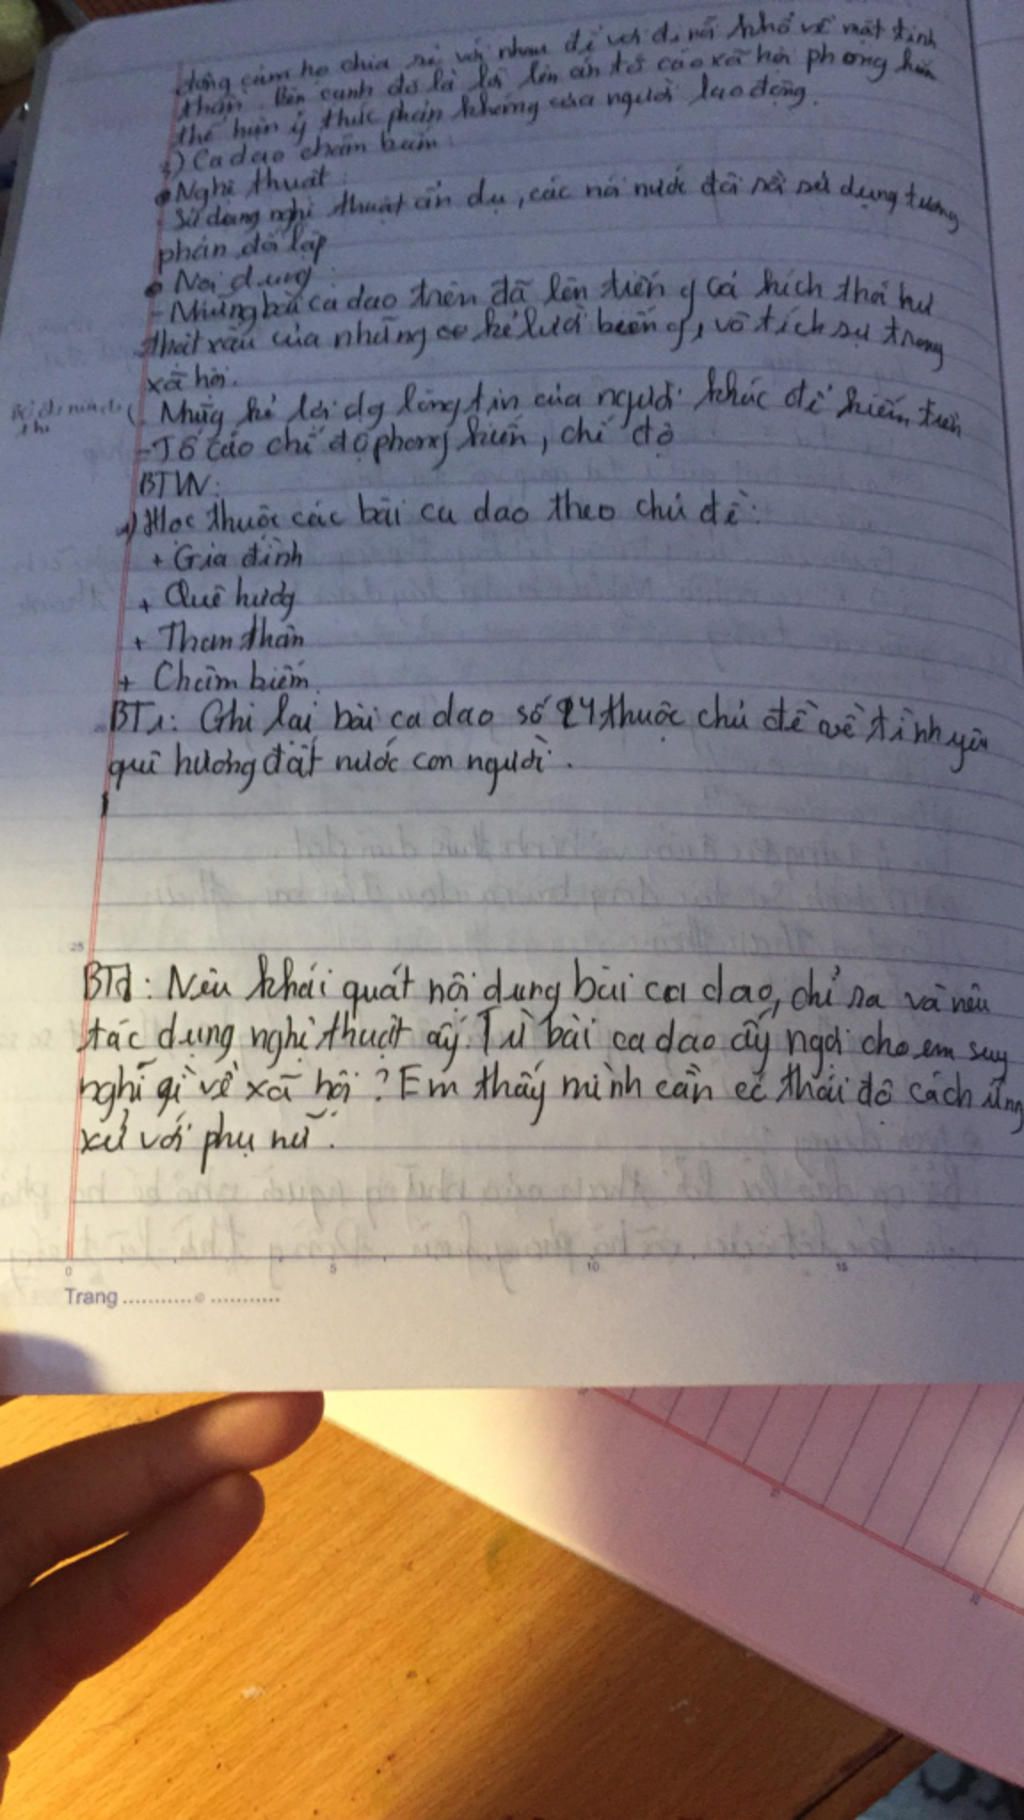 đồng cảm họ chia sẻ với nhau để vơi đi nỗi khổ về mặt tinh
thần. Bên cạnh đó là lời lên án tố cáo xã hội phong kiến
thể hiện ý thức phản kháng của người lao động.
3) Ca dao châm biếm
Nghệ thuật
Sử dụng nghệ thuật ẩn dụ, các nói nước đôi sử dụng tương
phản đối lập
Nội dung
- Những bài ca dao trên đã lên tiếng hích thói hư
thật xấu của những kẻ lười biếng, vô tích sự trong
xã hội.
Những kẻ lợi dg lòng tin của người khác để kiếm tiền
- Tố cáo chế độ phong kiến, chế độ
BTVN:
Học thuộc các bài ca dao theo chủ đề:
+ Gia đình
+ Quê hương
+ Than thân
+ Châm biếm
BT1: Ghi lại bài ca dao số 4 thuộc chủ đề về tình yêu
quê hương đất nước con người.
25
BT2: Nêu khái quát nội dung bài ca dao, chỉ ra và nêu
tác dụng nghệ thuật ấy. Từ bài ca dao ấy ngợi cho em suy
nghĩ gì về xã hội? Em thấy mình cần có thái độ cách ứng
xử với phụ nữ.
0 5 10 15
Trang